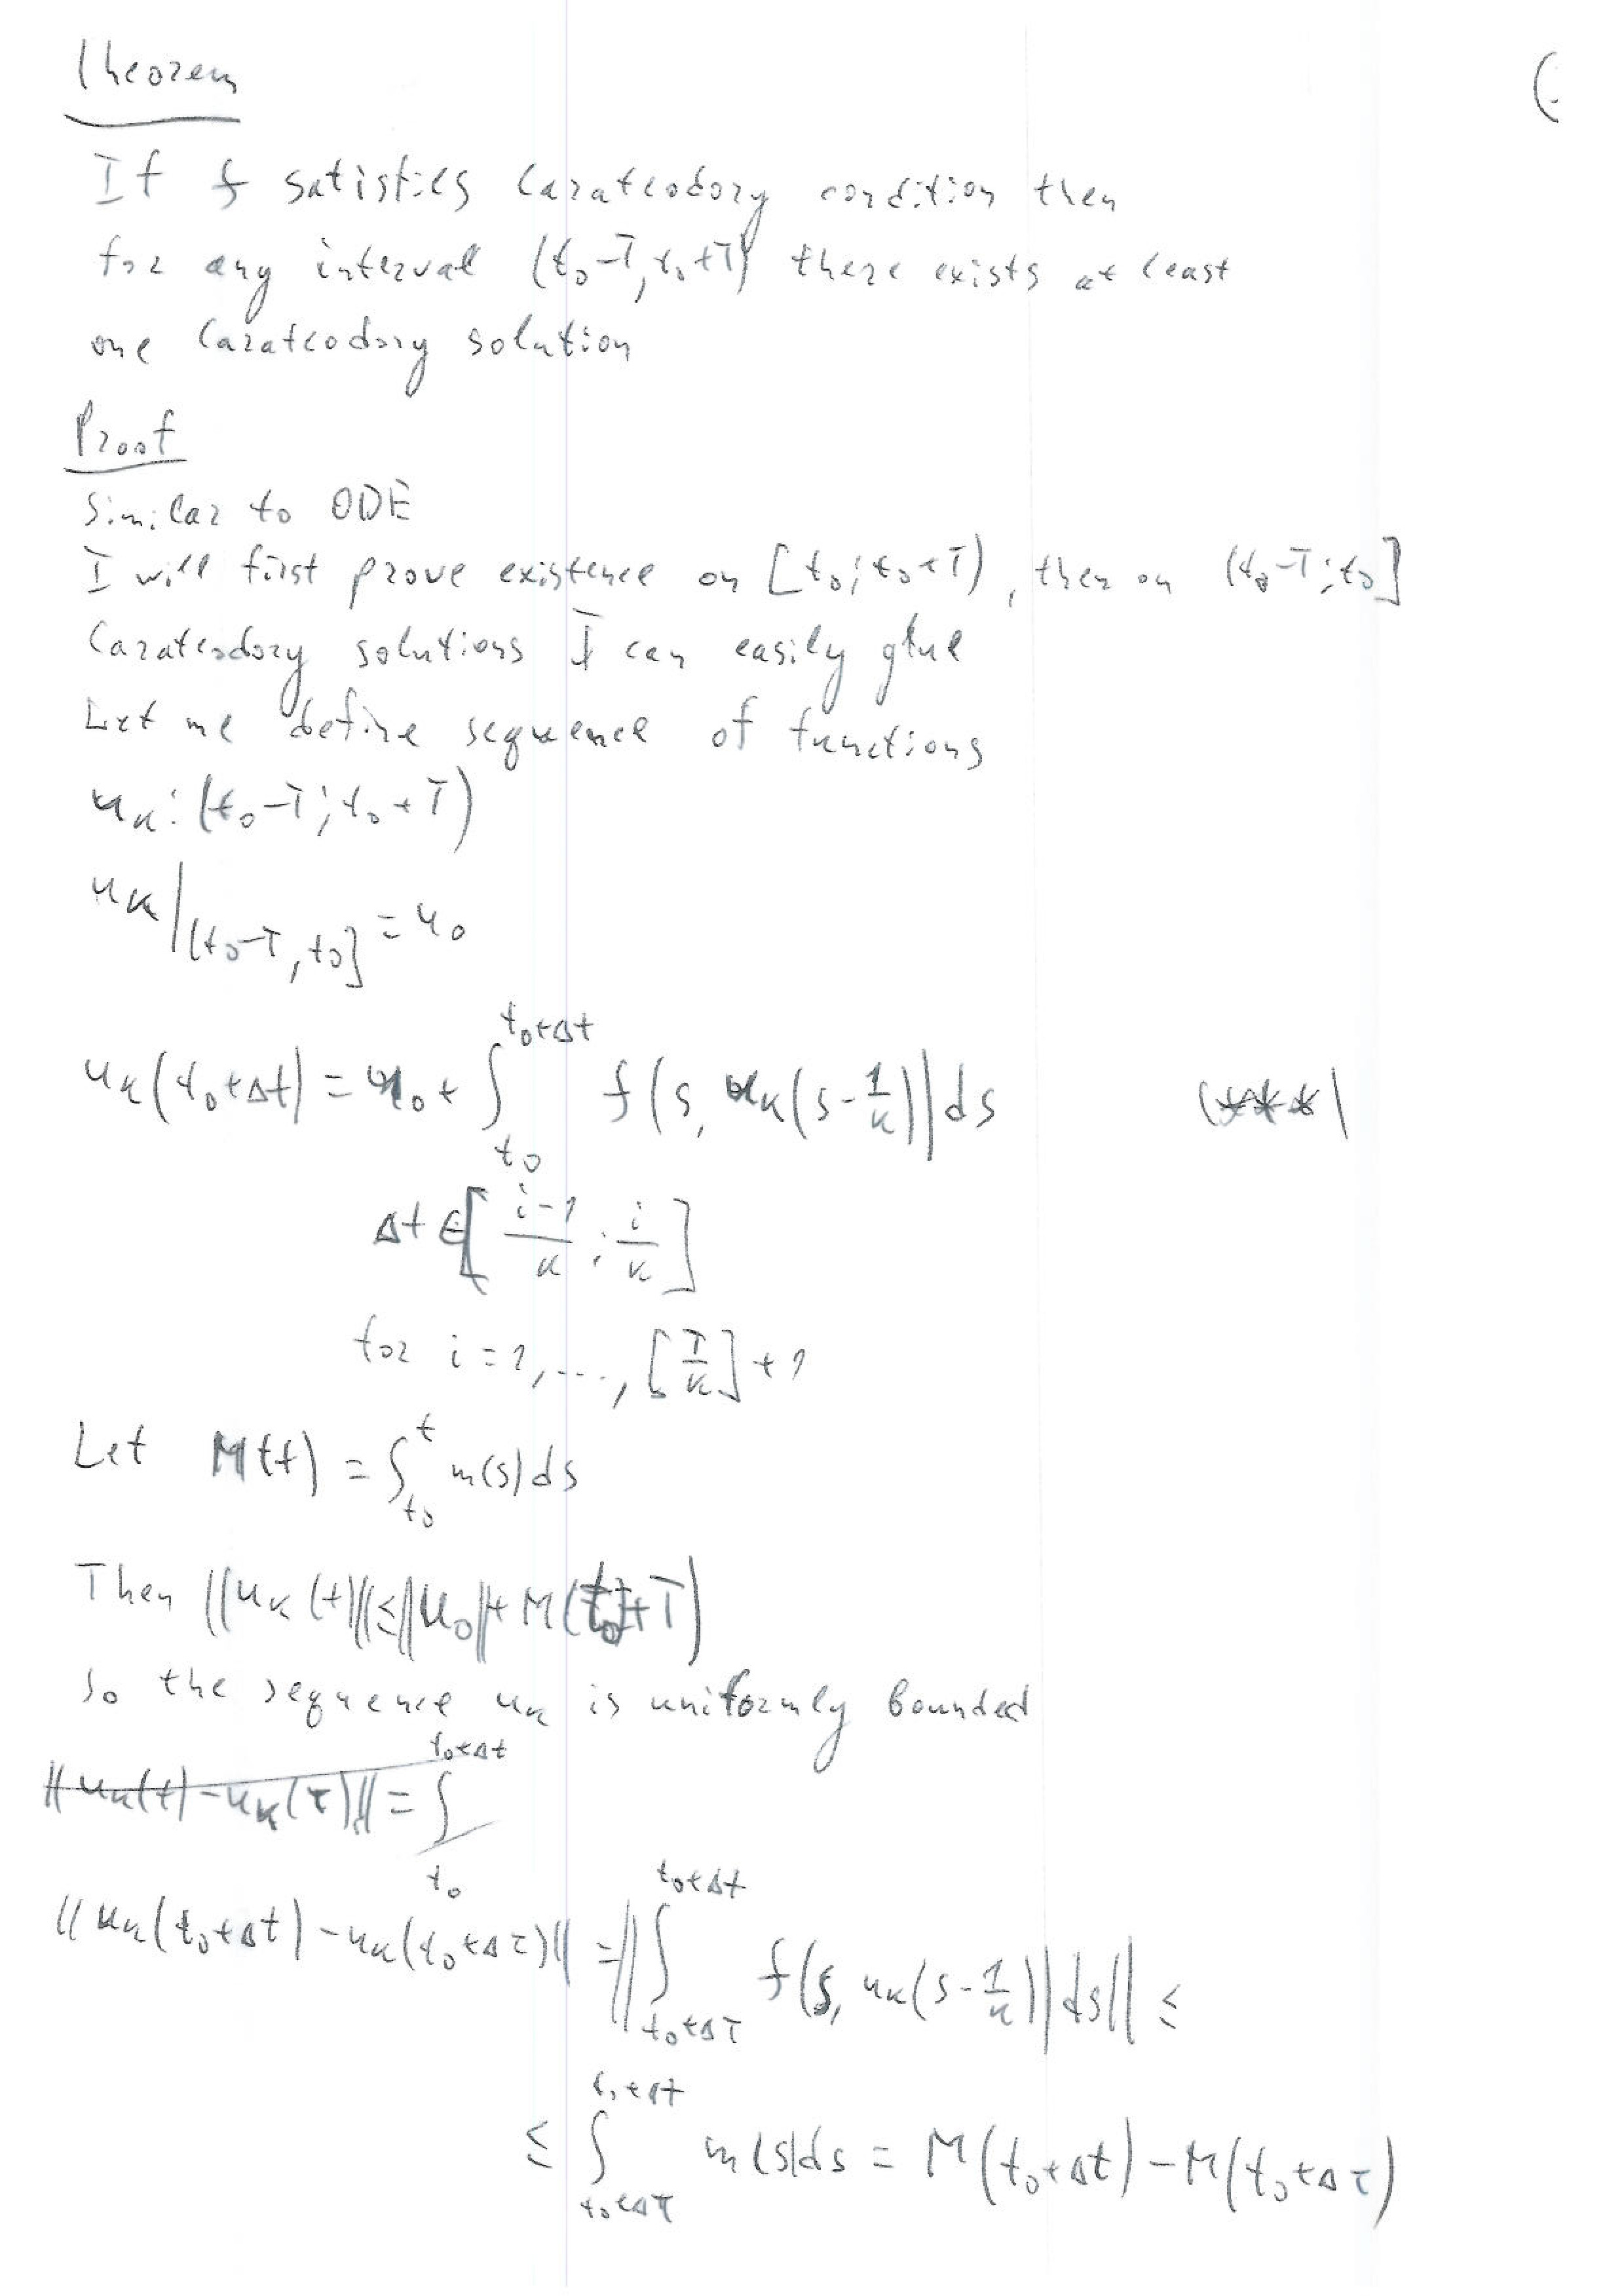 Theorem
If f satisfies Carateodory condition then
for any interval (t₀-T, t₀+T) there exists at least
one Carateodory solution
Proof
Similar to ODE
I will first prove existence on [t₀; t₀+T), then on (t₀-T; t₀]
Carateodory solutions I can easily glue
Let me define sequence of functions
uₖ: (t₀-T; t₀+T)
uₖ|(t₀-T, t₀] = u₀
uₖ(t₀+Δt) = u₀ + ∫_{t₀}^{t₀+Δt} f(s, uₖ(s - 1/k)) ds (***)
Δt ∈ [(i-1)/k ; i/k]
for i = 1, ..., [T/k] + 1
Let M(t) = ∫_{t₀}^{t} m(s) ds
Then ||uₖ(t)|| ≤ ||u₀|| + M(t₀+T)
So the sequence uₖ is uniformly bounded
||uₖ(t) - uₖ(τ)|| = ∫_{t₀}^{t₀+Δt}
||uₖ(t₀+Δt) - uₖ(t₀+Δτ)|| = ||∫_{t₀+Δτ}^{t₀+Δt} f(s, uₖ(s - 1/k)) ds|| ≤
≤ ∫_{t₀+Δτ}^{t₀+Δt} m(s) ds = M(t₀+Δt) - M(t₀+Δτ)